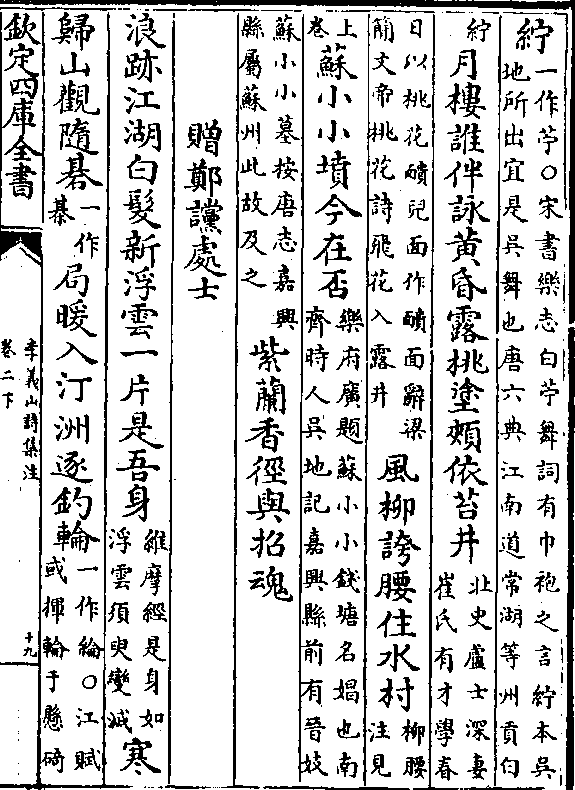 紵一作苧○宋書樂志白苧舞詞有巾袍之言紵本吳
地所出宜是吳舞也唐六典江南道常湖等州貢白
紵月樓誰伴詠黃昏露桃塗頰依苔井北史盧士深妻
崔氏有才學春
日以桃花靧兒面作靧面辭梁
簡文帝桃花詩飛花入露井風柳誇腰住水村柳腰
注見
上卷蘇小小墳今在否樂府廣題蘇小小錢塘名娼也南
齊時人吳地記嘉興縣前有晉妓
蘇小小墓按唐志嘉興
縣屬蘇州此故及之紫蘭香徑與招魂
贈鄭讜處士
浪跡江湖白髮新浮雲一片是吾身維摩經是身如
浮雲須臾變滅寒
歸山觀隨碁一作棊局暖入汀洲逐釣輪一作綸○江賦
或揮輪于懸碕
欽定四庫全書
李義山詩集注
卷二下
十九